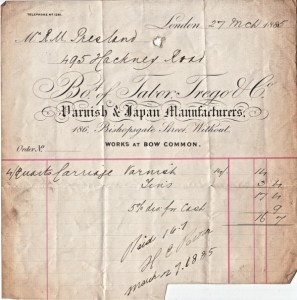 TELEPHONE Nº
London, 27 Mch 1885
Mr R M Presland
495 Hackney Road
Bot. of Tabor Trego & Co.
Varnish & Japan Manufacturers.
186, Bishopsgate Street Without.
WORKS AT BOW COMMON.
Order Nº
4/Quarts Carriage Varnish 14/ 14
Tins 3 4
17 4
5% dis for Cash 9
16 7
Paid 16.7
March 27. 1885